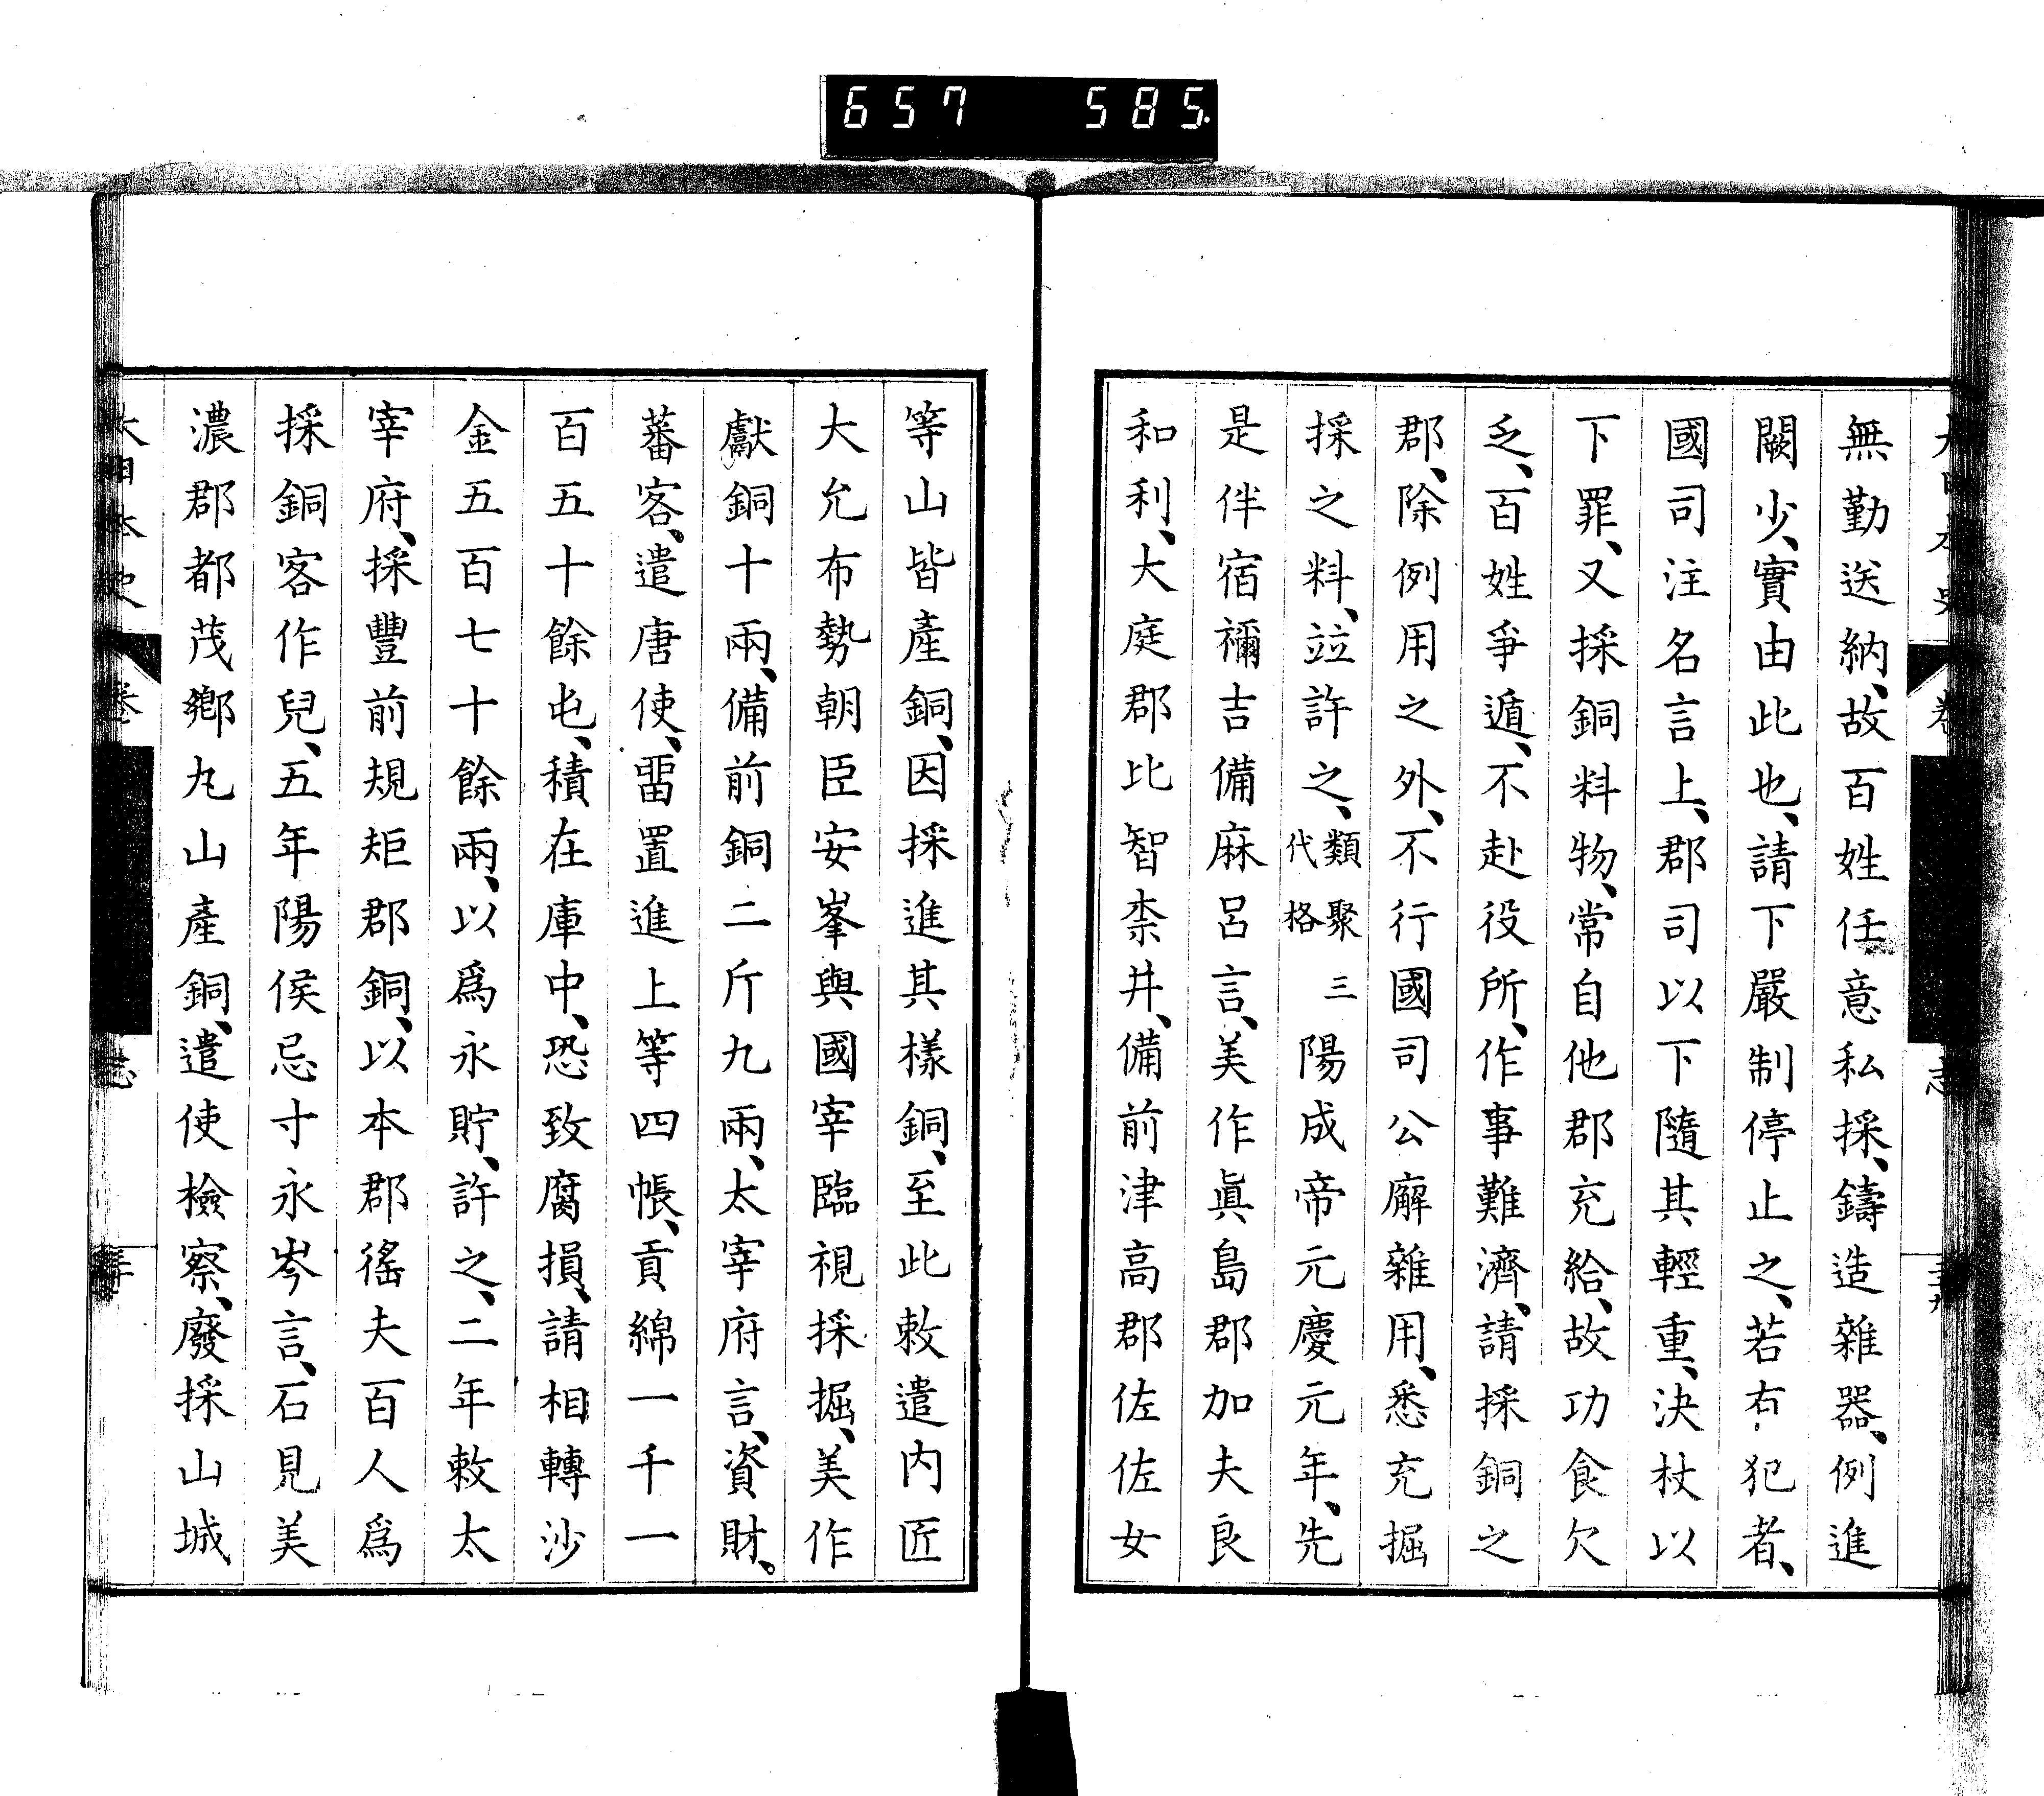 657 585.
無勤送納、故百姓任意私採、鑄造雜器、例進
闕少、實由此也、請下嚴制停止之、若有犯者、
國司注名言上、郡司以下隨其輕重、決杖以
下罪、又採銅料物、常自他郡充給、故功食欠
乏、百姓爭遁、不赴役所、作事難濟、請採銅之
郡、除例用之外、不行國司公廨雜用、悉充掘
採之料、竝許之、類聚三代格陽成帝元慶元年、先
是伴宿禰吉備麻呂言、美作眞島郡加夫良
和利、大庭郡比智柰井、備前津高郡佐佐女
等山皆產銅、因採進其樣銅、至此敕遣内匠
大允布勢朝臣安峯與國宰臨視採掘、美作
獻銅十兩、備前銅二斤九兩、太宰府言、資財、
蕃客、遣唐使、畱置進上等四帳、貢綿一千一
百五十餘屯、積在庫中、恐致腐損、請相轉沙
金五百七十餘兩、以爲永貯、許之、二年敕太
宰府、採豐前規矩郡銅、以本郡徭夫百人爲
採銅客作兒、五年陽侯忌寸永岑言、石見美
濃郡都茂鄉丸山產銅、遣使檢察、廢採山城
大日本史 卷 志